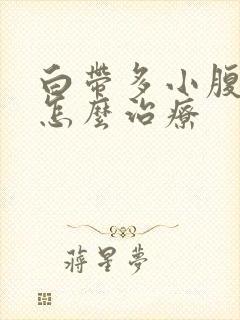 白帶多小腹
怎麼治療
蔣星夢